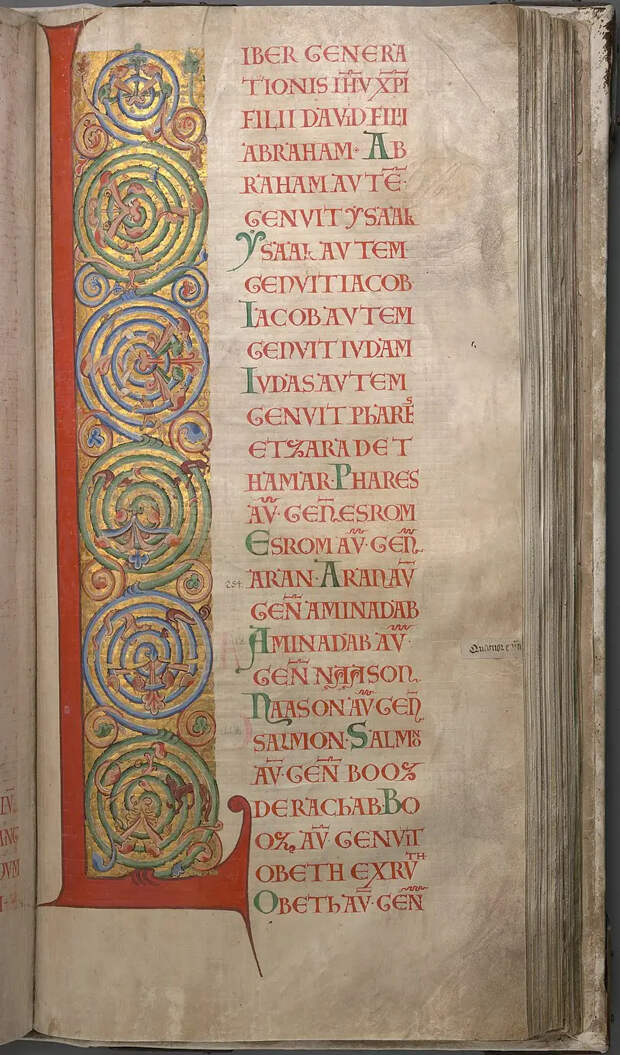 LIBER GENERA
TIONIS IHV XPI
FILII DAVID FILII
ABRAHAM· AB
RAHAM AVTE·
GENVIT YSAAK
YSAAK AVTEM
GENVIT IACOB
IACOB AVTEM
GENVIT IVDAM
IVDAS AVTEM
GENVIT PHARES
ET ZARA DE T
HAMAR· PHARES
AV· GEN ESROM
ESROM AV· GEN
ARAN· ARAN AV
GEN AMINADAB
AMINADAB AV·
GEN NAASON
NAASON AV GEN
SALMON· SALMON
AV· GEN BOOZ
DE RACHAB· BO
OZ, AV· GENVIT
OBETH EX RVTH
OBETH AV· GEN
254